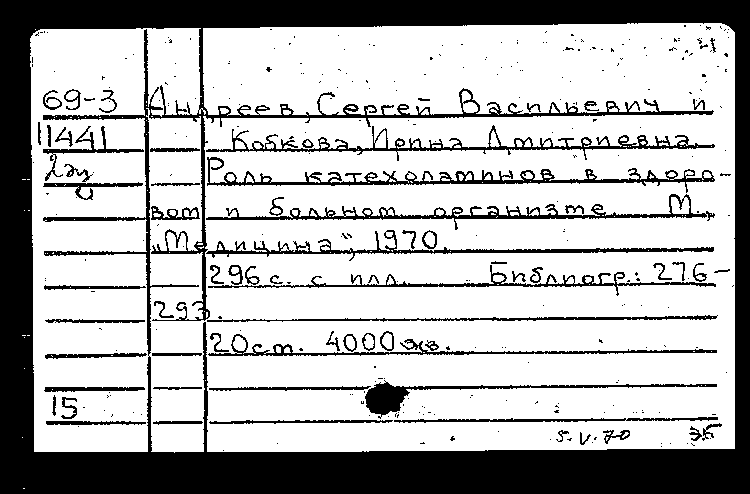 69-3 Андреев, Сергей Васильевич и
11441 Кобкова, Ирина Дмитриевна.
2эу Роль катехоламинов в здоро-
вом и больном организме. М.,
„Медицина“, 1970.
296 с. с илл. Библиогр.: 276-
293.
20 см. 4000 экз.
15
5.V.70 ЭБ